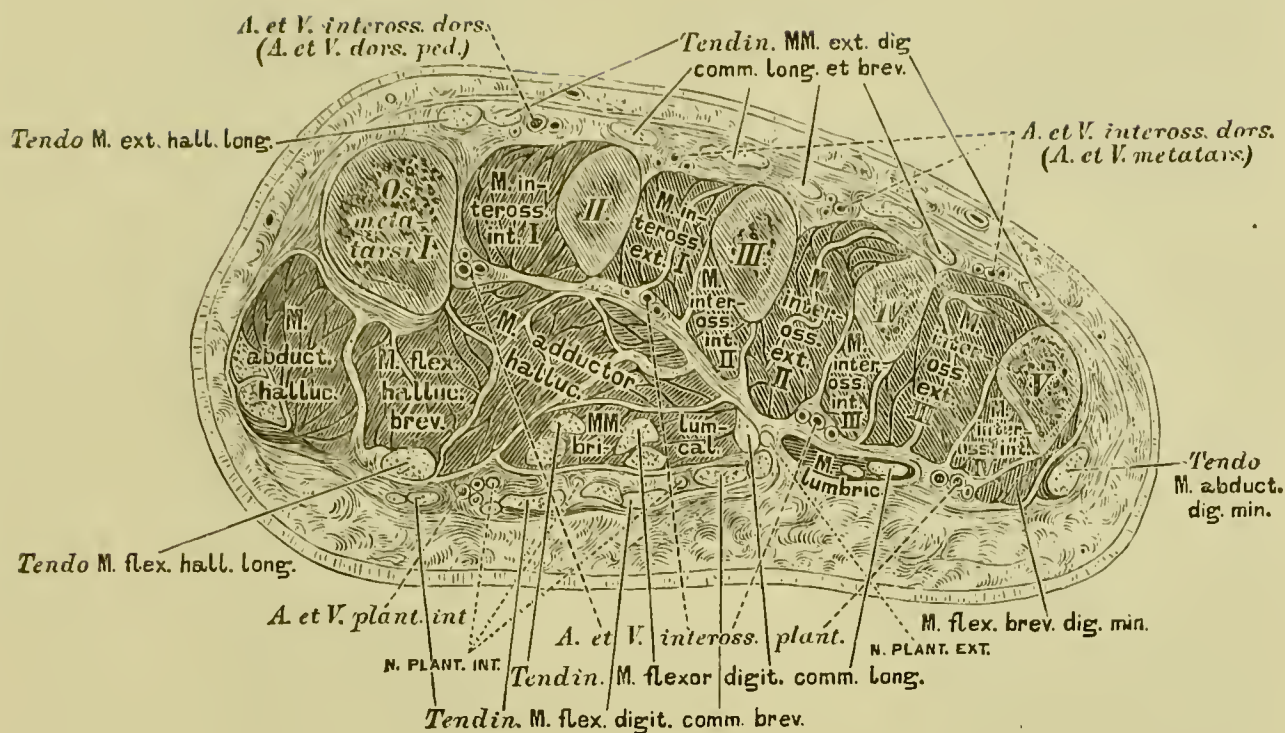 A. et V. inteross. dors.
(A. et V. dors. ped.)
Tendin. MM. ext. dig
comm. long. et brev.
Tendo M. ext. hall. long.
A. et V. inteross. dors.
(A. et V. metatars.)
Os
meta-
tarsi I
M. in-
teross.
int. I
II.
M. in-
teross.
ext. I
M.
inter-
oss.
int.
II
III.
M.
inter-
oss.
ext.
II
M.
inter-
oss.
int.
III
IV
M.
inter-
oss.
ext.
M.
inter-
oss. int.
V
M.
abduct.
halluc.
M. flex.
halluc.
brev.
M.
adductor
halluc.
MM
bri-
lum-
cal.
M.
lumbric.
Tendo
M. abduct.
dig. min.
Tendo M. flex. hall. long.
A. et V. plant. int
N. PLANT. INT.
A. et V. inteross. plant.
M. flex. brev. dig. min.
N. PLANT. EXT.
Tendin. M. flexor digit. comm. long.
Tendin. M. flex. digit. comm. brev.